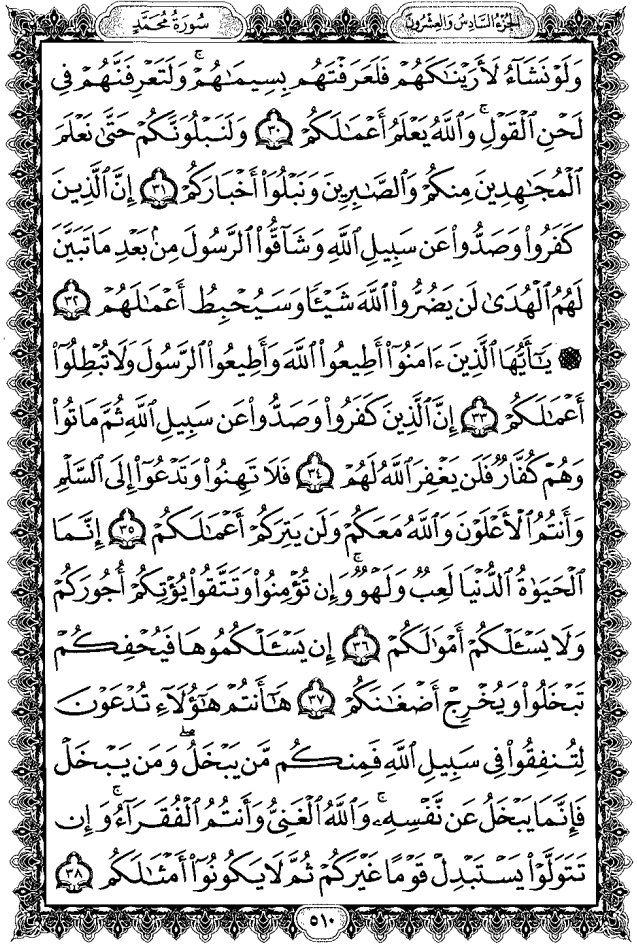 الجزء السادس والعشرون
سورة محمد
وَلَوْ نَشَآءُ لَأَرَيْنَٰكَهُمْ فَلَعَرَفْتَهُم بِسِيمَٰهُمْ ۚ وَلَتَعْرِفَنَّهُمْ فِى
لَحْنِ ٱلْقَوْلِ ۚ وَٱللَّهُ يَعْلَمُ أَعْمَٰلَكُمْ ٣٠ وَلَنَبْلُوَنَّكُمْ حَتَّىٰ نَعْلَمَ
ٱلْمُجَٰهِدِينَ مِنكُمْ وَٱلصَّٰبِرِينَ وَنَبْلُوَا۟ أَخْبَارَكُمْ ٣١ إِنَّ ٱلَّذِينَ
كَفَرُوا۟ وَصَدُّوا۟ عَن سَبِيلِ ٱللَّهِ وَشَآقُّوا۟ ٱلرَّسُولَ مِنۢ بَعْدِ مَا تَبَيَّنَ
لَهُمُ ٱلْهُدَىٰ لَن يَضُرُّوا۟ ٱللَّهَ شَيْـًٔا وَسَيُحْبِطُ أَعْمَٰلَهُمْ ٣٢
۞ يَٰٓأَيُّهَا ٱلَّذِينَ ءَامَنُوٓا۟ أَطِيعُوا۟ ٱللَّهَ وَأَطِيعُوا۟ ٱلرَّسُولَ وَلَا تُبْطِلُوٓا۟
أَعْمَٰلَكُمْ ٣٣ إِنَّ ٱلَّذِينَ كَفَرُوا۟ وَصَدُّوا۟ عَن سَبِيلِ ٱللَّهِ ثُمَّ مَاتُوا۟
وَهُمْ كُفَّارٌ فَلَن يَغْفِرَ ٱللَّهُ لَهُمْ ٣٤ فَلَا تَهِنُوا۟ وَتَدْعُوٓا۟ إِلَى ٱلسَّلْمِ
وَأَنتُمُ ٱلْأَعْلَوْنَ وَٱللَّهُ مَعَكُمْ وَلَن يَتِرَكُمْ أَعْمَٰلَكُمْ ٣٥ إِنَّمَا
ٱلْحَيَوٰةُ ٱلدُّنْيَا لَعِبٌ وَلَهْوٌ ۚ وَإِن تُؤْمِنُوا۟ وَتَتَّقُوا۟ يُؤْتِكُمْ أُجُورَكُمْ
وَلَا يَسْـَٔلْكُمْ أَمْوَٰلَكُمْ ٣٦ إِن يَسْـَٔلْكُمُوهَا فَيُحْفِكُمْ
تَبْخَلُوا۟ وَيُخْرِجْ أَضْغَٰنَكُمْ ٣٧ هَٰٓأَنتُمْ هَٰٓؤُلَآءِ تُدْعَوْنَ
لِتُنفِقُوا۟ فِى سَبِيلِ ٱللَّهِ فَمِنكُم مَّن يَبْخَلُ ۖ وَمَن يَبْخَلْ
فَإِنَّمَا يَبْخَلُ عَن نَّفْسِهِۦ ۚ وَٱللَّهُ ٱلْغَنِىُّ وَأَنتُمُ ٱلْفُقَرَآءُ ۚ وَإِن
تَتَوَلَّوْا۟ يَسْتَبْدِلْ قَوْمًا غَيْرَكُمْ ثُمَّ لَا يَكُونُوٓا۟ أَمْثَٰلَكُم ٣٨
٥١٠